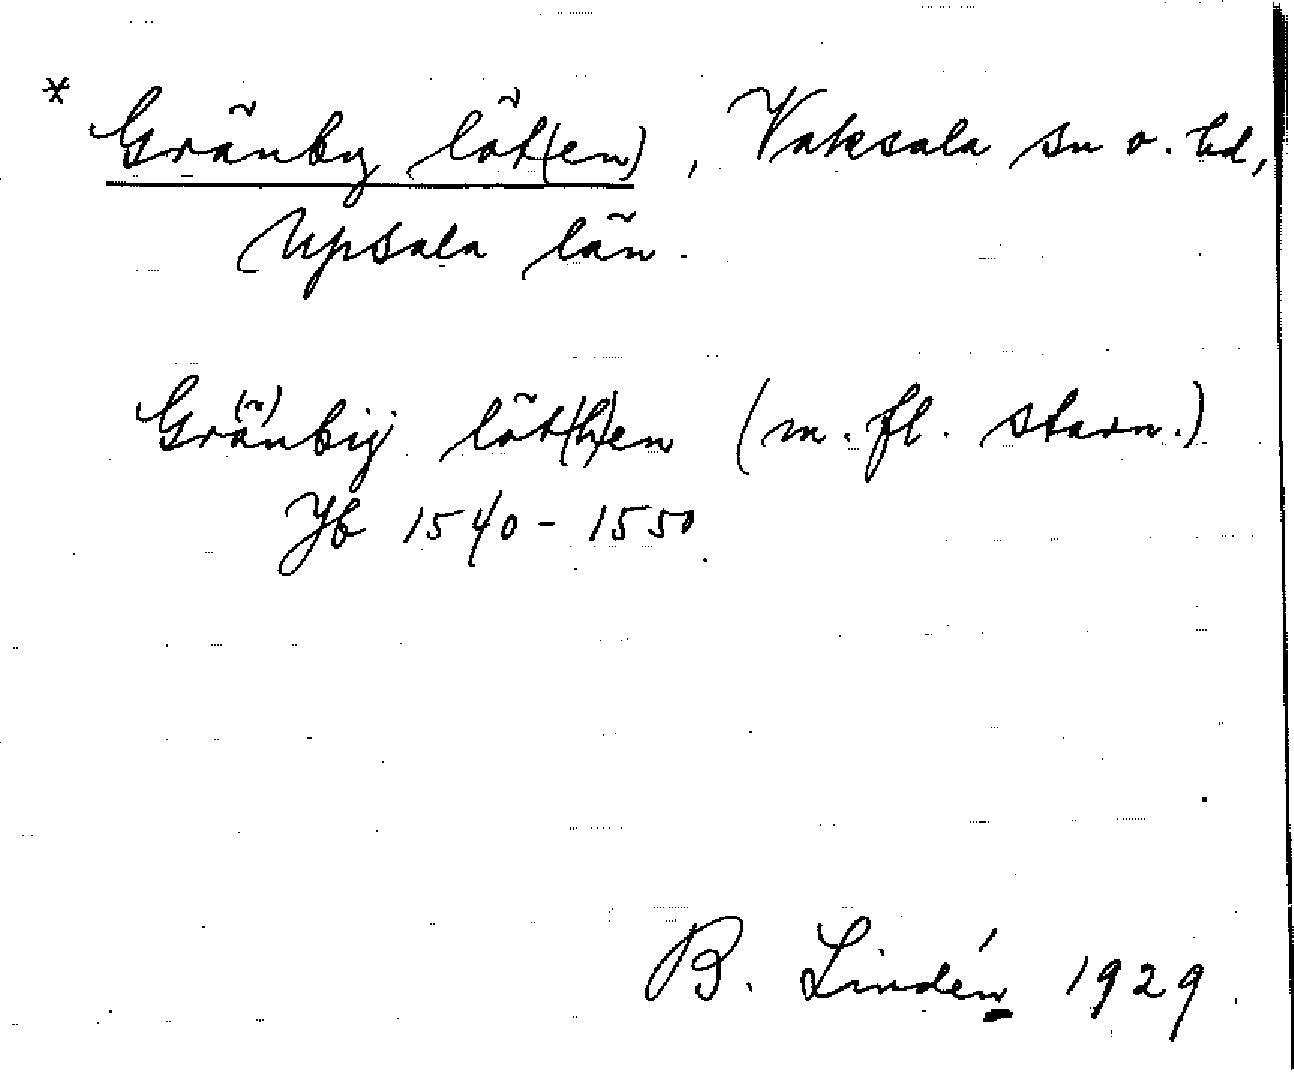 * Gränby löt(en), Vaksala sn o. hd,
Upsala län.
Grä(n)bij löt(h)en (m. fl. stavn.)
Jb 1540-1550
B. Lindén 1929